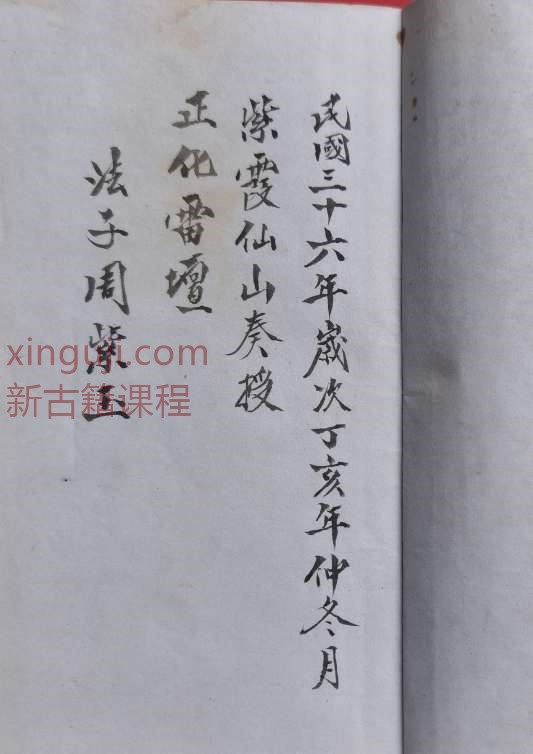 民國三十六年歲次丁亥年仲冬月
紫霞仙山奏授
正化雷壇
法子周紫玉
xinguji.com
新古籍课程